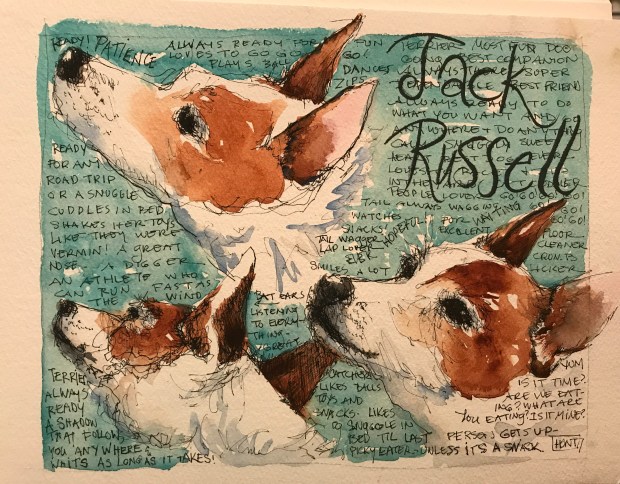 READY! PATIENCE ALWAYS READY FOR FUN
LOVES TO GO GO GO!
PLAYS BALL DANCES
ZIPS
TERRIER MOST FUN DOG
BEST COMPANION
ALWAYS THERE SUPER
BEST FRIEND
ALWAYS READY TO DO
WHAT YOU WANT AND
ANYWHERE + DO ANYTHING
Jack
Russell
READY
FOR ANY
ROAD TRIP
OR A SNUGGLE
CUDDLES IN BED
SHAKES HER TOYS
LIKE THEY WERE
VERMIN! A GREAT
NOSE A DIGGER
AN ATHLETE WHO
CAN RUN FAST AS
THE WIND
TAIL ALWAYS WAGGING
WATCHES
SNACKS!
TAIL WAGGER
LAP LOVER
EVER HOPEFUL FOR
SMILES A LOT
WAITING GO! GO!
EXCELLENT FLOOR
CLEANER
CRUMB
LICKER
BAT EARS
LISTENING
TO EVERY-
THING
GREAT
TERRIER
ALWAYS
READY
A SHADOW
THAT FOLLOWS
YOU ANYWHERE
WAITS AS LONG AS IT TAKES!
LIKES BALLS
TOYS AND
SNACKS. LIKES
TO SNUGGLE IN
BED TIL LAST PERSON GETS UP-
PICKY EATER-UNLESS IT'S A SNACK
YUM
IS IT TIME?
ARE WE EAT-
ING? WHAT ARE
YOU EATING? IS IT MINE?
HUNT